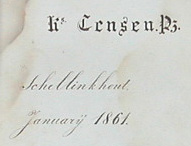 Ks Censen.Pz.
Schellinkhout.
Januarij 1861.